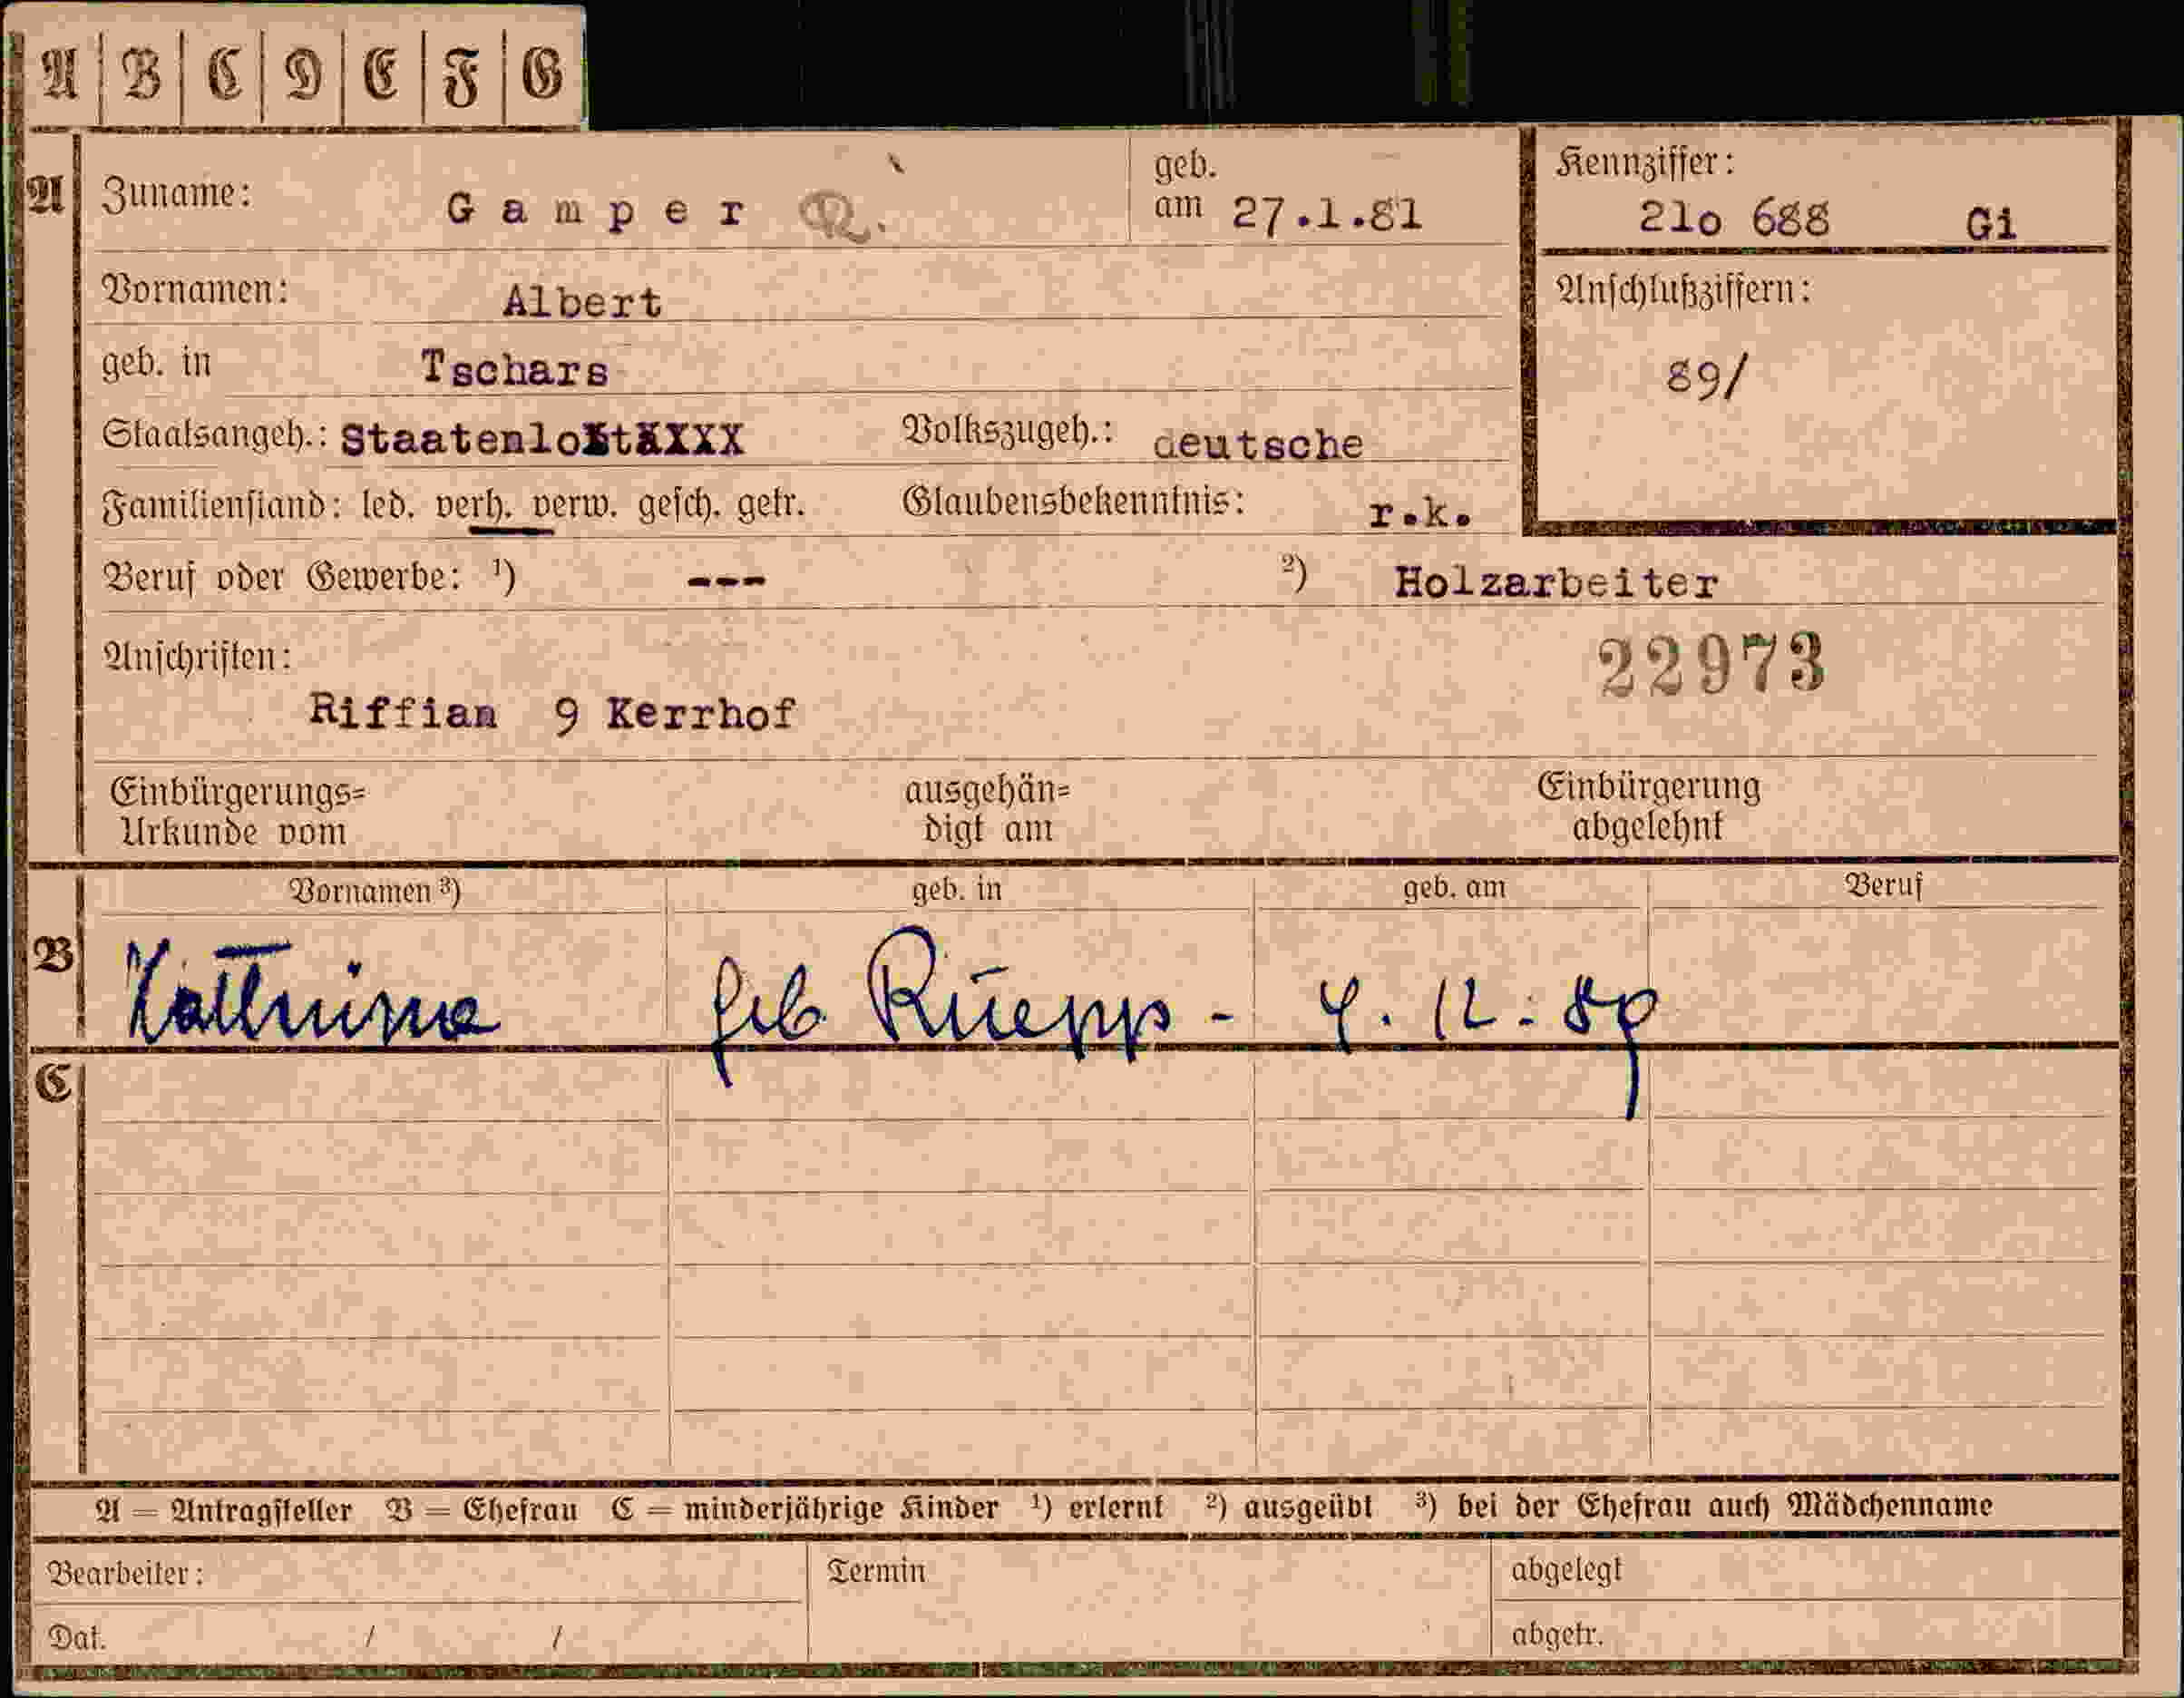 A B C D E F G
A Zuname: Gamper R. geb. am 27.1.81
Kennziffer: 21o 688 Gi
Vornamen: Albert
Anschlußziffern: 89/
geb. in Tschars
Staatsangeh.: Staatenlos Volkszugeh.: deutsche
Familienstand: led. verh. verw. gesch. getr. Glaubensbekenntnis: r.k.
Beruf oder Gewerbe: ¹) --- ²) Holzarbeiter
Anschriften: 22973
Riffian 9 Kerrhof
Einbürgerungs= Urkunde vom
ausgehän= digt am
Einbürgerung abgelehnt
Vornamen ³) geb. in geb. am Beruf
B Kathrina geb Rüepp - 4. 12. 89
C
A = Antragsteller B = Ehefrau C = minderjährige Kinder ¹) erlernt ²) ausgeübt ³) bei der Ehefrau auch Mädchenname
Bearbeiter: Termin abgelegt
Dat. / / abgetr.